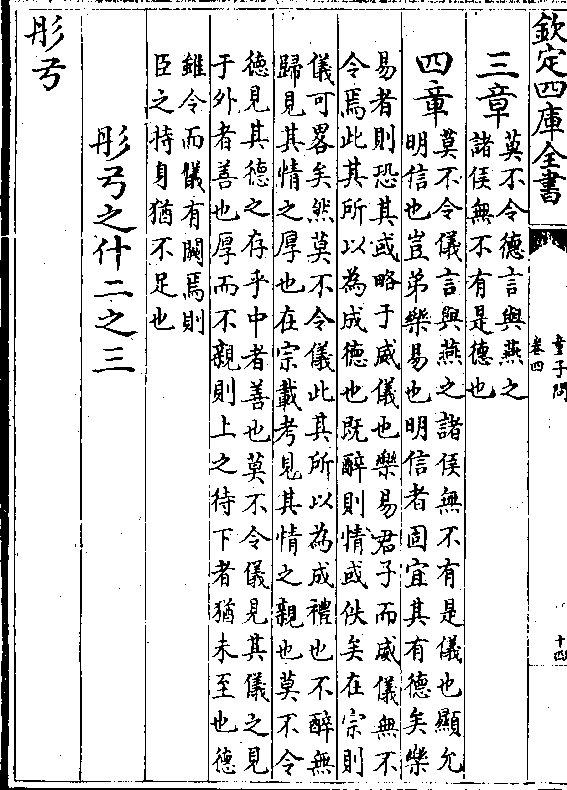 欽定四庫全書
童子問
卷四
十四
三章
莫不令德言與燕之
諸侯無不有是德也
四章
莫不令儀言與燕之諸侯無不有是儀也顯允
明信也豈弟樂易也明信者固宜其有德矣樂
易者則恐其或略于威儀也樂易君子而威儀無不
令焉此其所以為成德也既醉則情或佚矣在宗則
儀可畧矣然莫不令儀此其所以為成禮也不醉無
歸見其情之厚也在宗載考見其情之親也莫不令
德見其德之存乎中者善也莫不令儀見其儀之見
于外者善也厚而不親則上之待下者猶未至也德
雖令而儀有闕焉則
臣之持身猶不足也
彤弓之什二之三
彤弓